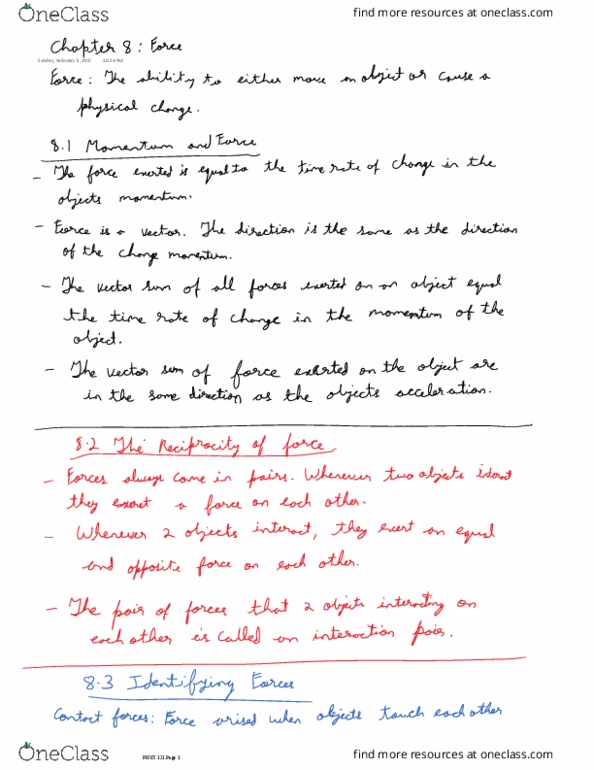 OneClass
find more resources at oneclass.com
Chapter 8: Force
Sunday, February 5, 2017
Force: The ability to either move an object or cause a
physical change.
8.1 Momentum and Force
- The force exerted is equal to the time rate of change in the
objects momentum.
- Force is a vector. The direction is the same as the direction
of the change momentum.
- The vector sum of all forces exerted on an object equal
the time rate of change in the momentum of the
object.
- The vector sum of force exerted on the object are
in the same direction as the objects acceleration.
8.2 The Reciprocity of force
- Forces always come in pairs. Whenever two objects
they exert a force on each other.
- Whenever 2 objects interact, they exert an equal
and opposite force on each other.
- The pair of forces that 2 objects interacting on
each other is called an interaction pair.
8.3 Identifying Forces
Contact forces: Force arised when objects touch each other
OneClass
PHYS 121 Page 1
find more resources at oneclass.com